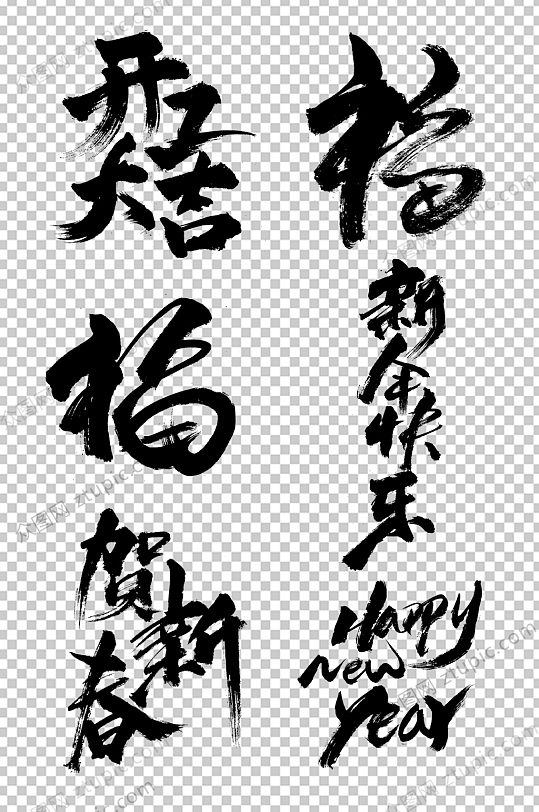 开工
大吉
福
福
新年快乐
贺新春
Happy
New
Year
众图网 ztupic.com